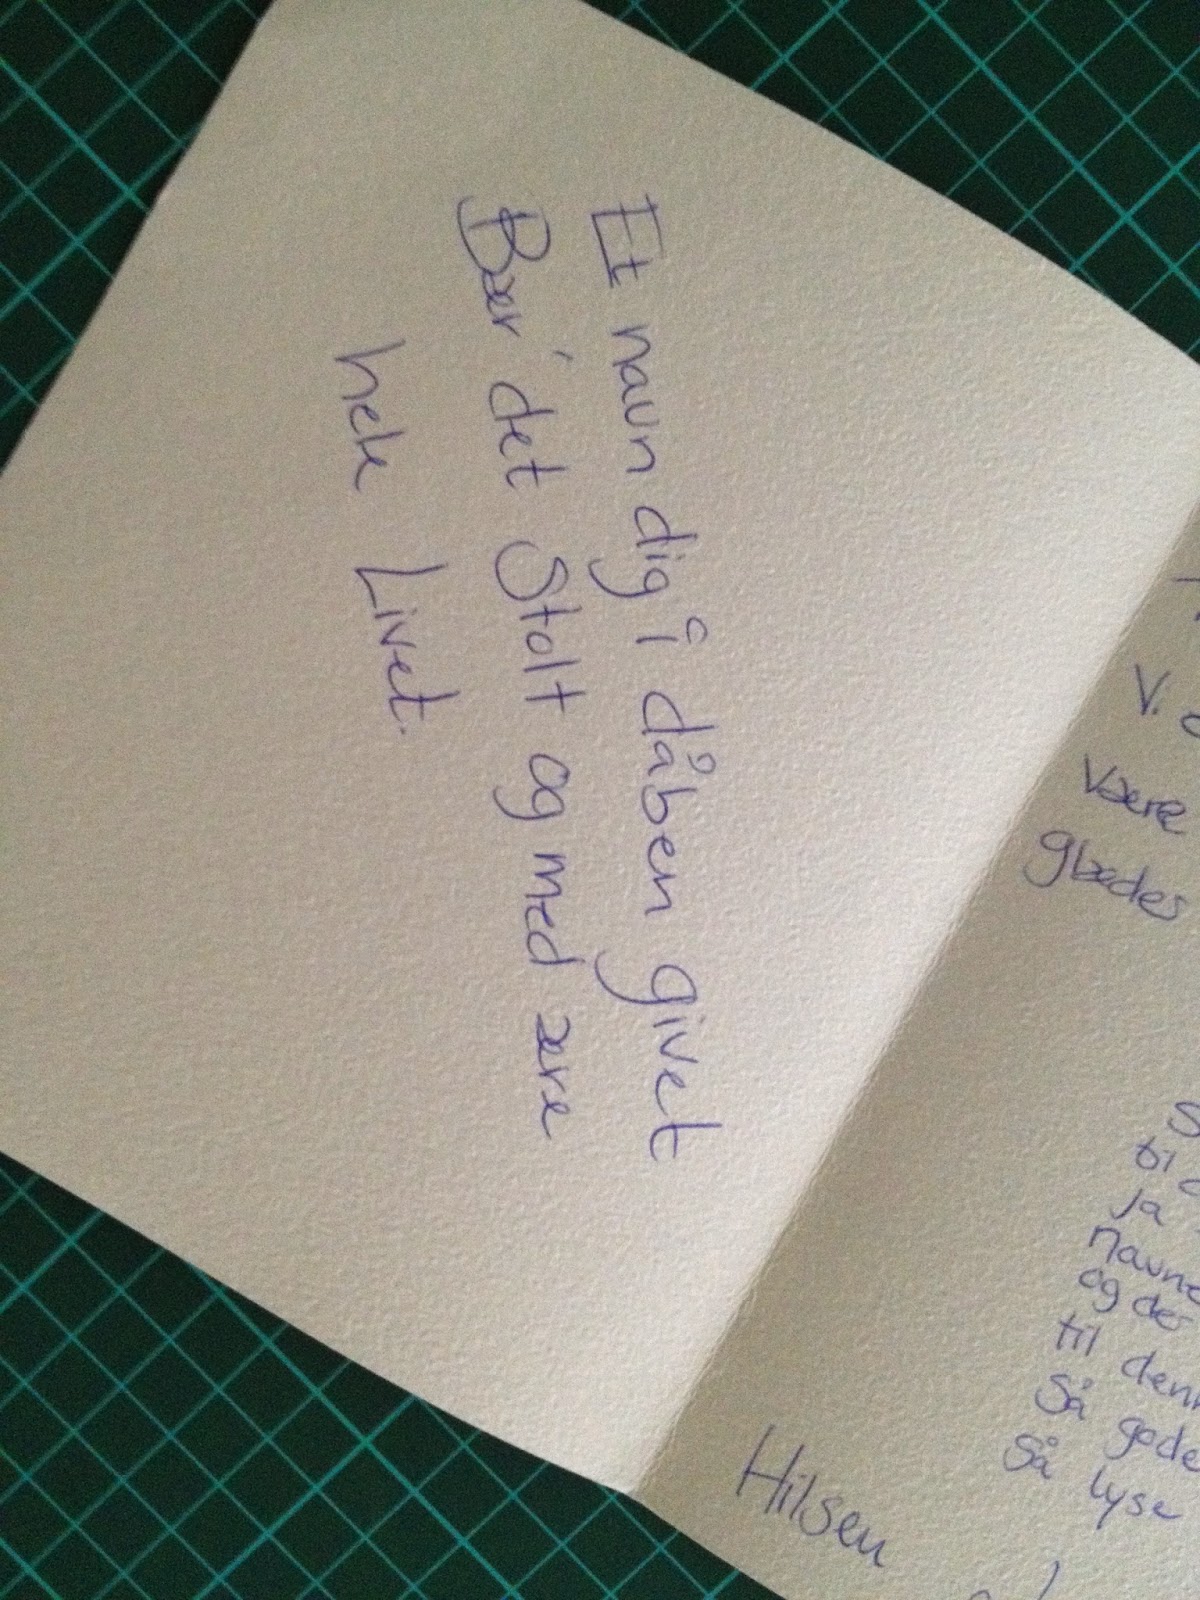 Et navn dig i dåben givet
Bær' det Stolt og med ære
hele Livet.
V.
Være
glædes
til
Ja
navne
og
til denn
Så gode
Så lyse
Hilsen